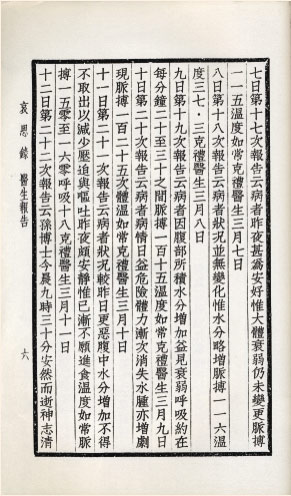 七日第十七次報告云病者昨夜甚為安好惟大體衰弱仍未變更脈搏
一一五溫度如常克禮醫生三月七日
八日第十八次報告云病者狀況並無變化惟水分略增脈搏一一六溫
度三七·三克禮醫生三月八日
九日第十九次報告云病者因腹部所積水分增加益見衰弱呼吸約在
每分鐘二十至三十之間脈搏一百十五溫度如常克禮醫生三月九日
十日第二十次報告云病者病情日益危險體力漸次消失水腫亦增劇
現脈搏一百二十五次體溫如常克禮醫生三月十日
十一日第二十一次報告云病者狀況較昨日更惡腹中水分增加不得
不取出以減少壓迫與嘔吐昨夜頗安靜惟已漸不願進食溫度如常脈
搏一五零至一六零呼吸十八克禮醫生三月十一日
十二日第二十二次報告云孫博士今晨九時三十分安然而逝神志清
哀思錄 醫生報告 六